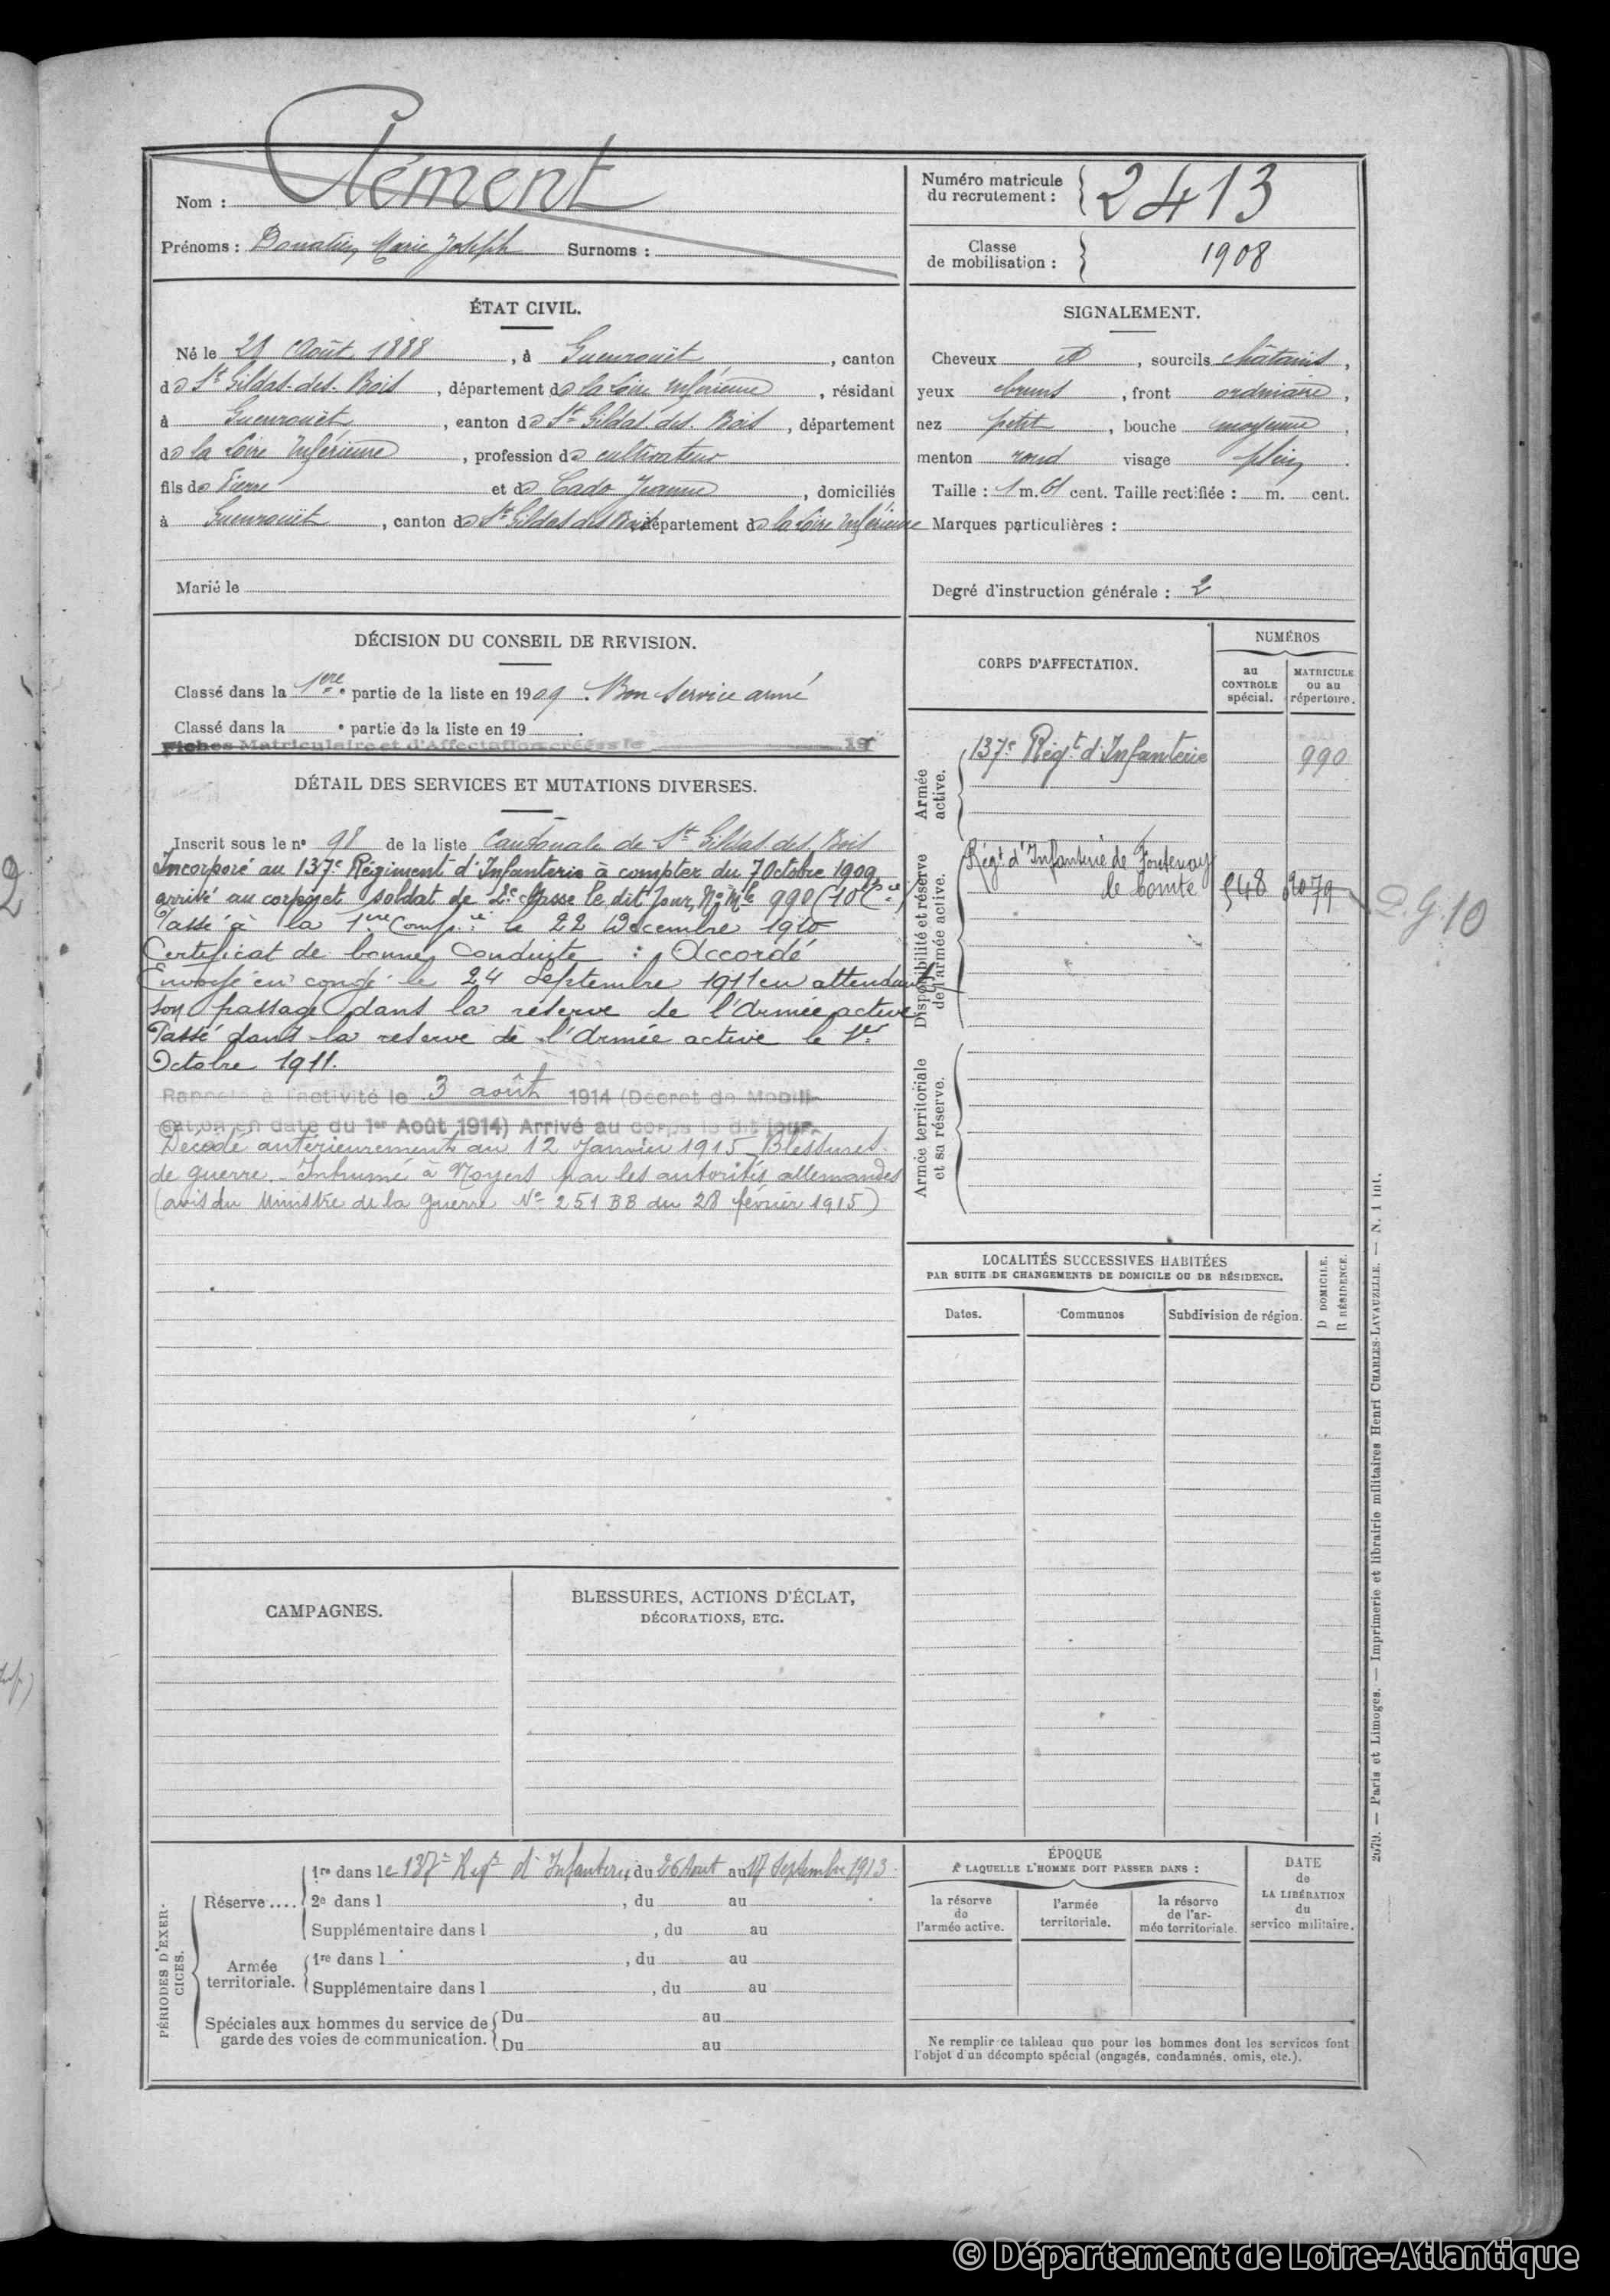 Nom : Clément
Prénoms : Donatien, Marie Joseph Surnoms :
Numéro matricule du recrutement : 2413
Classe de mobilisation : 1908
ÉTAT CIVIL.
Né le 29 Août 1888, à Guenrouët, canton
de St Gildas-des-Bois, département de la Loire Inférieure, résidant
à Guenrouët, canton de St Gildas-des-Bois, département
de la Loire Inférieure, profession de cultivateur
fils de Pierre et de Cado Jeanne, domiciliés
à Guenrouët, canton de St Gildas des Bois, département de la Loire Inférieure
Marié le
SIGNALEMENT.
Cheveux et, sourcils châtains,
yeux bruns, front ordinaire,
nez petit, bouche moyenne,
menton rond visage plein.
Taille : 1 m. 61 cent. Taille rectifiée : m. cent.
Marques particulières :
Degré d'instruction générale : 2
DÉCISION DU CONSEIL DE REVISION.
Classé dans la 1ère partie de la liste en 1909. Bon service armé
Classé dans la • partie de la liste en 19 .
Fiches Matriculaire et d'Affectation créées le 19
DÉTAIL DES SERVICES ET MUTATIONS DIVERSES.
Inscrit sous le n° 98 de la liste Cantonale de St Gildas des Bois
Incorporé au 137e Régiment d'Infanterie à compter du 7 Octobre 1909,
arrivé au corps et soldat de 2e classe le dit jour, No Mle 990 (10e Cie)
Passé à la 1ere Compie le 22 Décembre 1910
Certificat de bonne Conduite : Accordé
Envoyé en congé le 24 Septembre 1911 en attendant
son passage dans la réserve de l'Armée active
Passé dans la réserve de l'Armée active le 1er
Octobre 1911.
Rappelé à l'activité le 3 août 1914 (Décret de Mobili-
sation en date du 1er Août 1914) Arrivé au corps le dit jour.
Décédé antérieurement au 12 Janvier 1915 Blessures
de guerre - Inhumé à Noyers par les autorités allemandes
(avis du Ministre de la Guerre No 251 BB du 28 février 1915)
CORPS D'AFFECTATION.
NUMÉROS
au CONTROLE spécial.
MATRICULE ou au répertoire.
Armée active.
137e Régt d'Infanterie 990
Disponibilité et réserve de l'armée active.
Régt d'Infanterie de Fontenay
le Comte 548 2079
P. G. 10
Armée territoriale et sa réserve.
LOCALITÉS SUCCESSIVES HABITÉES
PAR SUITE DE CHANGEMENTS DE DOMICILE OU DE RÉSIDENCE.
Dates. Communes Subdivision de région.
D DOMICILE.
R RÉSIDENCE.
CAMPAGNES.
BLESSURES, ACTIONS D'ÉCLAT,
DÉCORATIONS, ETC.
PÉRIODES D'EXER-
CICES.
Réserve....
1re dans le 137e Régt d'Infanterie, du 26 Aout au 17 Septembre 1913
2e dans l , du au .
Supplémentaire dans l , du au
Armée territoriale.
1re dans l , du au
Supplémentaire dans l , du au
Spéciales aux hommes du service de
garde des voies de communication.
Du au
Du au
ÉPOQUE
A LAQUELLE L'HOMME DOIT PASSER DANS :
la réserve de l'armée active.
l'armée territoriale.
la réserve de l'armée territoriale.
DATE
de
LA LIBÉRATION
du
service militaire.
Ne remplir ce tableau que pour les hommes dont les services font
l'objet d'un décompte spécial (engagés, condamnés, omis, etc.).
2679. — Paris et Limoges. — Imprimerie et librairie militaires Henri CHARLES-LAVAUZELLE. — N. 1 int.
© Département de Loire-Atlantique